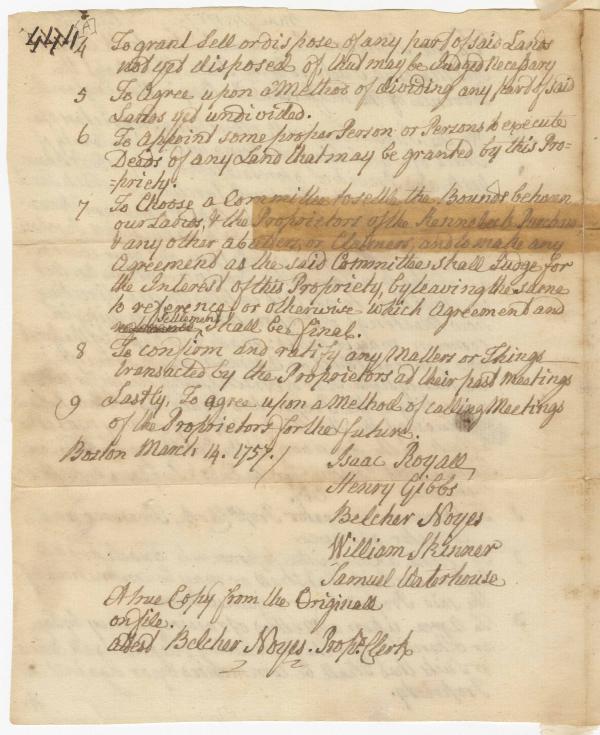 [A]
4 To grant Sell or dispose of any part of said Lands
not yet disposed of, that may be Judged Necessary
5 To Agree upon a Method of dividing any part of said
Lands yet undivided.
6 To Appoint some proper Person or Persons to execute
Deeds of any Land that may be granted by this Pro=
=priety.
7 To Choose a Committee to settle the Bounds between
our Lands, & the Proprietors of the Kennebeck Purchase
& any other abutters, or Claimers, and to make any
Agreement as the said Committee shall Judge for
the Interest of this Propriety, by leaving the same
to reference or otherwise which Agreement and
Settlement
shall be final.
8 To confirm and ratify any Matters or Things
transacted by the Proprietors at their past meetings
9 Lastly, To agree upon a Method of calling Meetings
of the Proprietors for the future.
Boston March 14. 1757.
Isaac Royall
Henry Gibbs
Belcher Noyes
William Skinner
Samuel Waterhouse
A true Copy from the Originall
on file.
attest Belcher Noyes. Proprs. Clerk